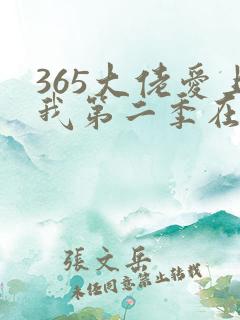 365大佬爱上
我第二季在
張文岳
未任同意禁止转载